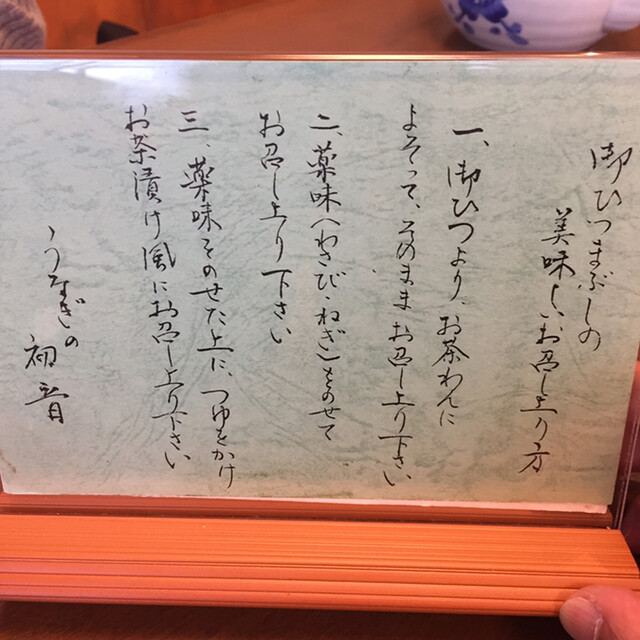 御ひつまぶしの
美味しいお召し上り方
一、御ひつより、お茶わんに
よそって、そのまま お召し上り下さい
二、薬味(わさび・ねぎ)をのせて
お召し上り下さい
三、薬味をのせた上に、つゆをかけ
お茶漬け風にお召し上り下さい
うなぎの
初音